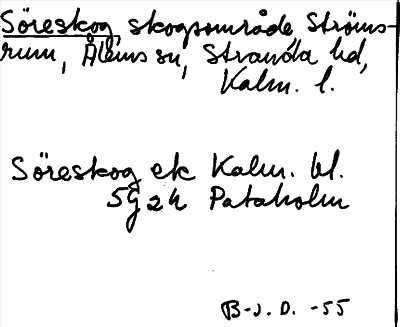 Söreskog, skogsområde, Ströms-
rum, Ålems sn, Stranda hd,
Kalm. l.
Söreskog ek Kalm. bl.
5G2h Pataholm
B-J. D. -55